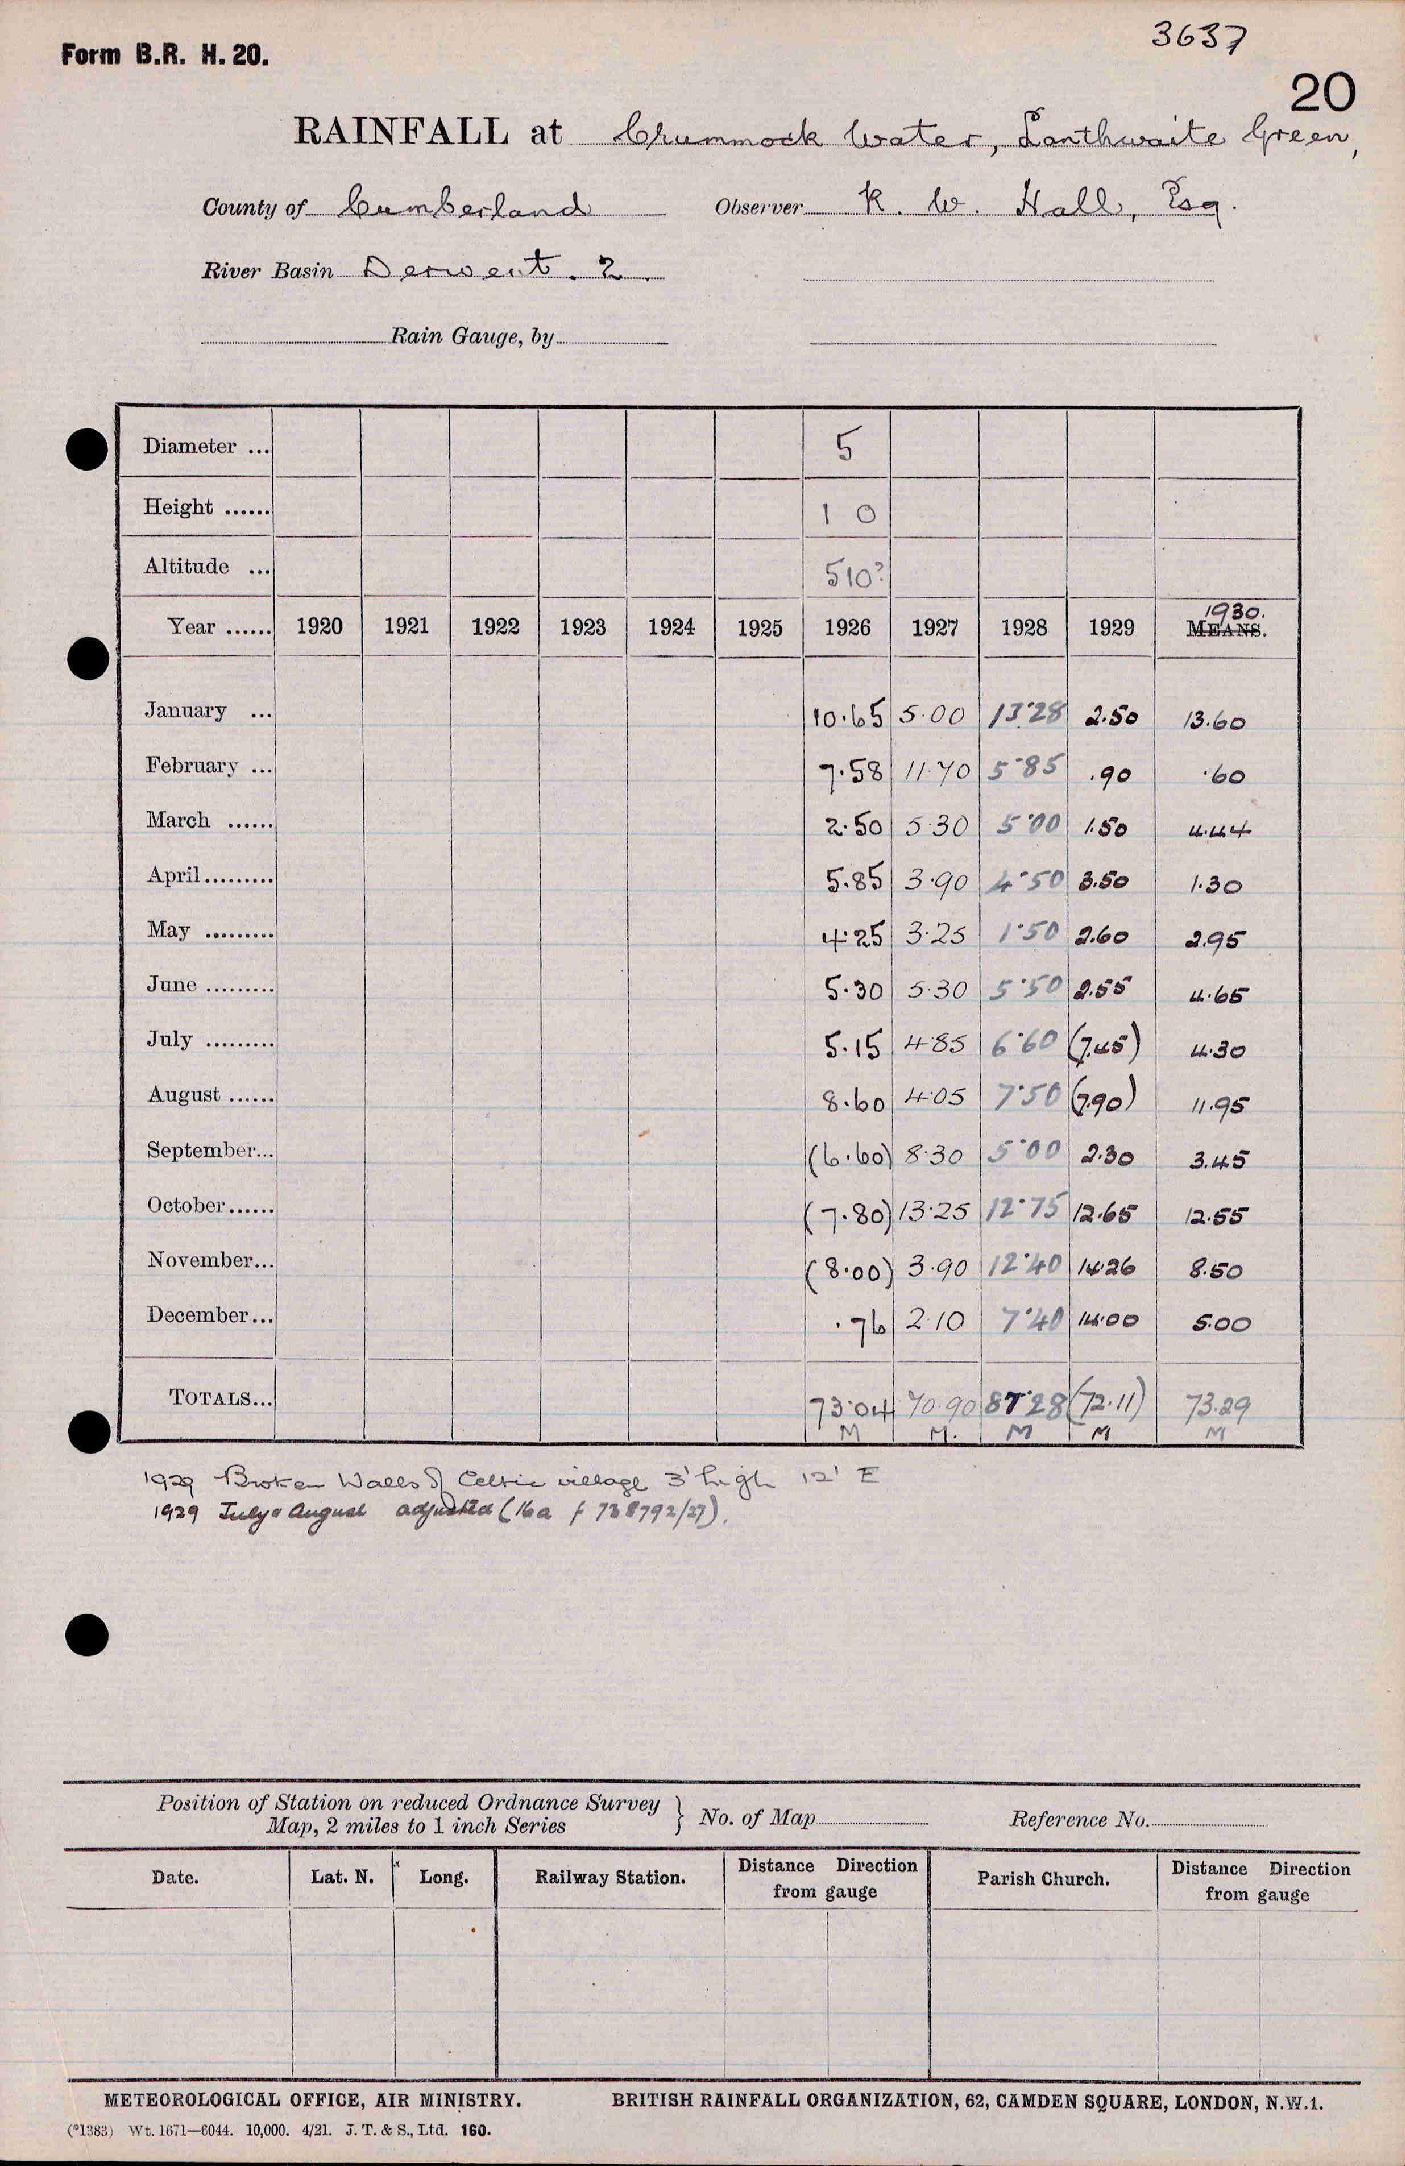 3637
Form B.R. H. 20.
20
RAINFALL at Crummock Water, Lanthwaite Green,
County of Cumberland Observer R. W. Hall, Esq.
River Basin Derwent. 2.
Rain Gauge, by
Diameter ... 5
Height ...... 1 0
Altitude ... 510?
1930.
Year ...... 1920 1921 1922 1923 1924 1925 1926 1927 1928 1929 MEANS.
January ... 10.65 5.00 13.28 2.50 13.60
February ... 7.58 11.70 5.85 .90 .60
March ...... 2.50 5.30 5.00 1.50 4.44
April ......... 5.85 3.90 4.50 3.50 1.30
May ......... 4.25 3.25 1.50 2.60 2.95
June ......... 5.30 5.30 5.50 2.55 4.65
July ......... 5.15 4.85 6.60 (7.45) 4.30
August ...... 8.60 4.05 7.50 (7.90) 11.95
September... (6.60) 8.30 5.00 2.30 3.45
October...... (7.80) 13.25 12.75 12.65 12.55
November... (8.00) 3.90 12.40 14.26 8.50
December... .76 2.10 7.40 14.00 5.00
TOTALS... 73.04 70.90 87.28 (72.11) 73.29
M M. M M M
1929 Broken Walls of Celtic village 3' high 12' E
1929 July & August adjusted (16a f 738792/27).
Position of Station on reduced Ordnance Survey
Map, 2 miles to 1 inch Series } No. of Map Reference No.
Date. Lat. N. Long. Railway Station. Distance Direction from gauge Parish Church. Distance Direction from gauge
METEOROLOGICAL OFFICE, AIR MINISTRY. BRITISH RAINFALL ORGANIZATION, 62, CAMDEN SQUARE, LONDON, N.W.1.
(*1383) Wt. 1671—6044. 10,000. 4/21. J. T. & S., Ltd. 160.